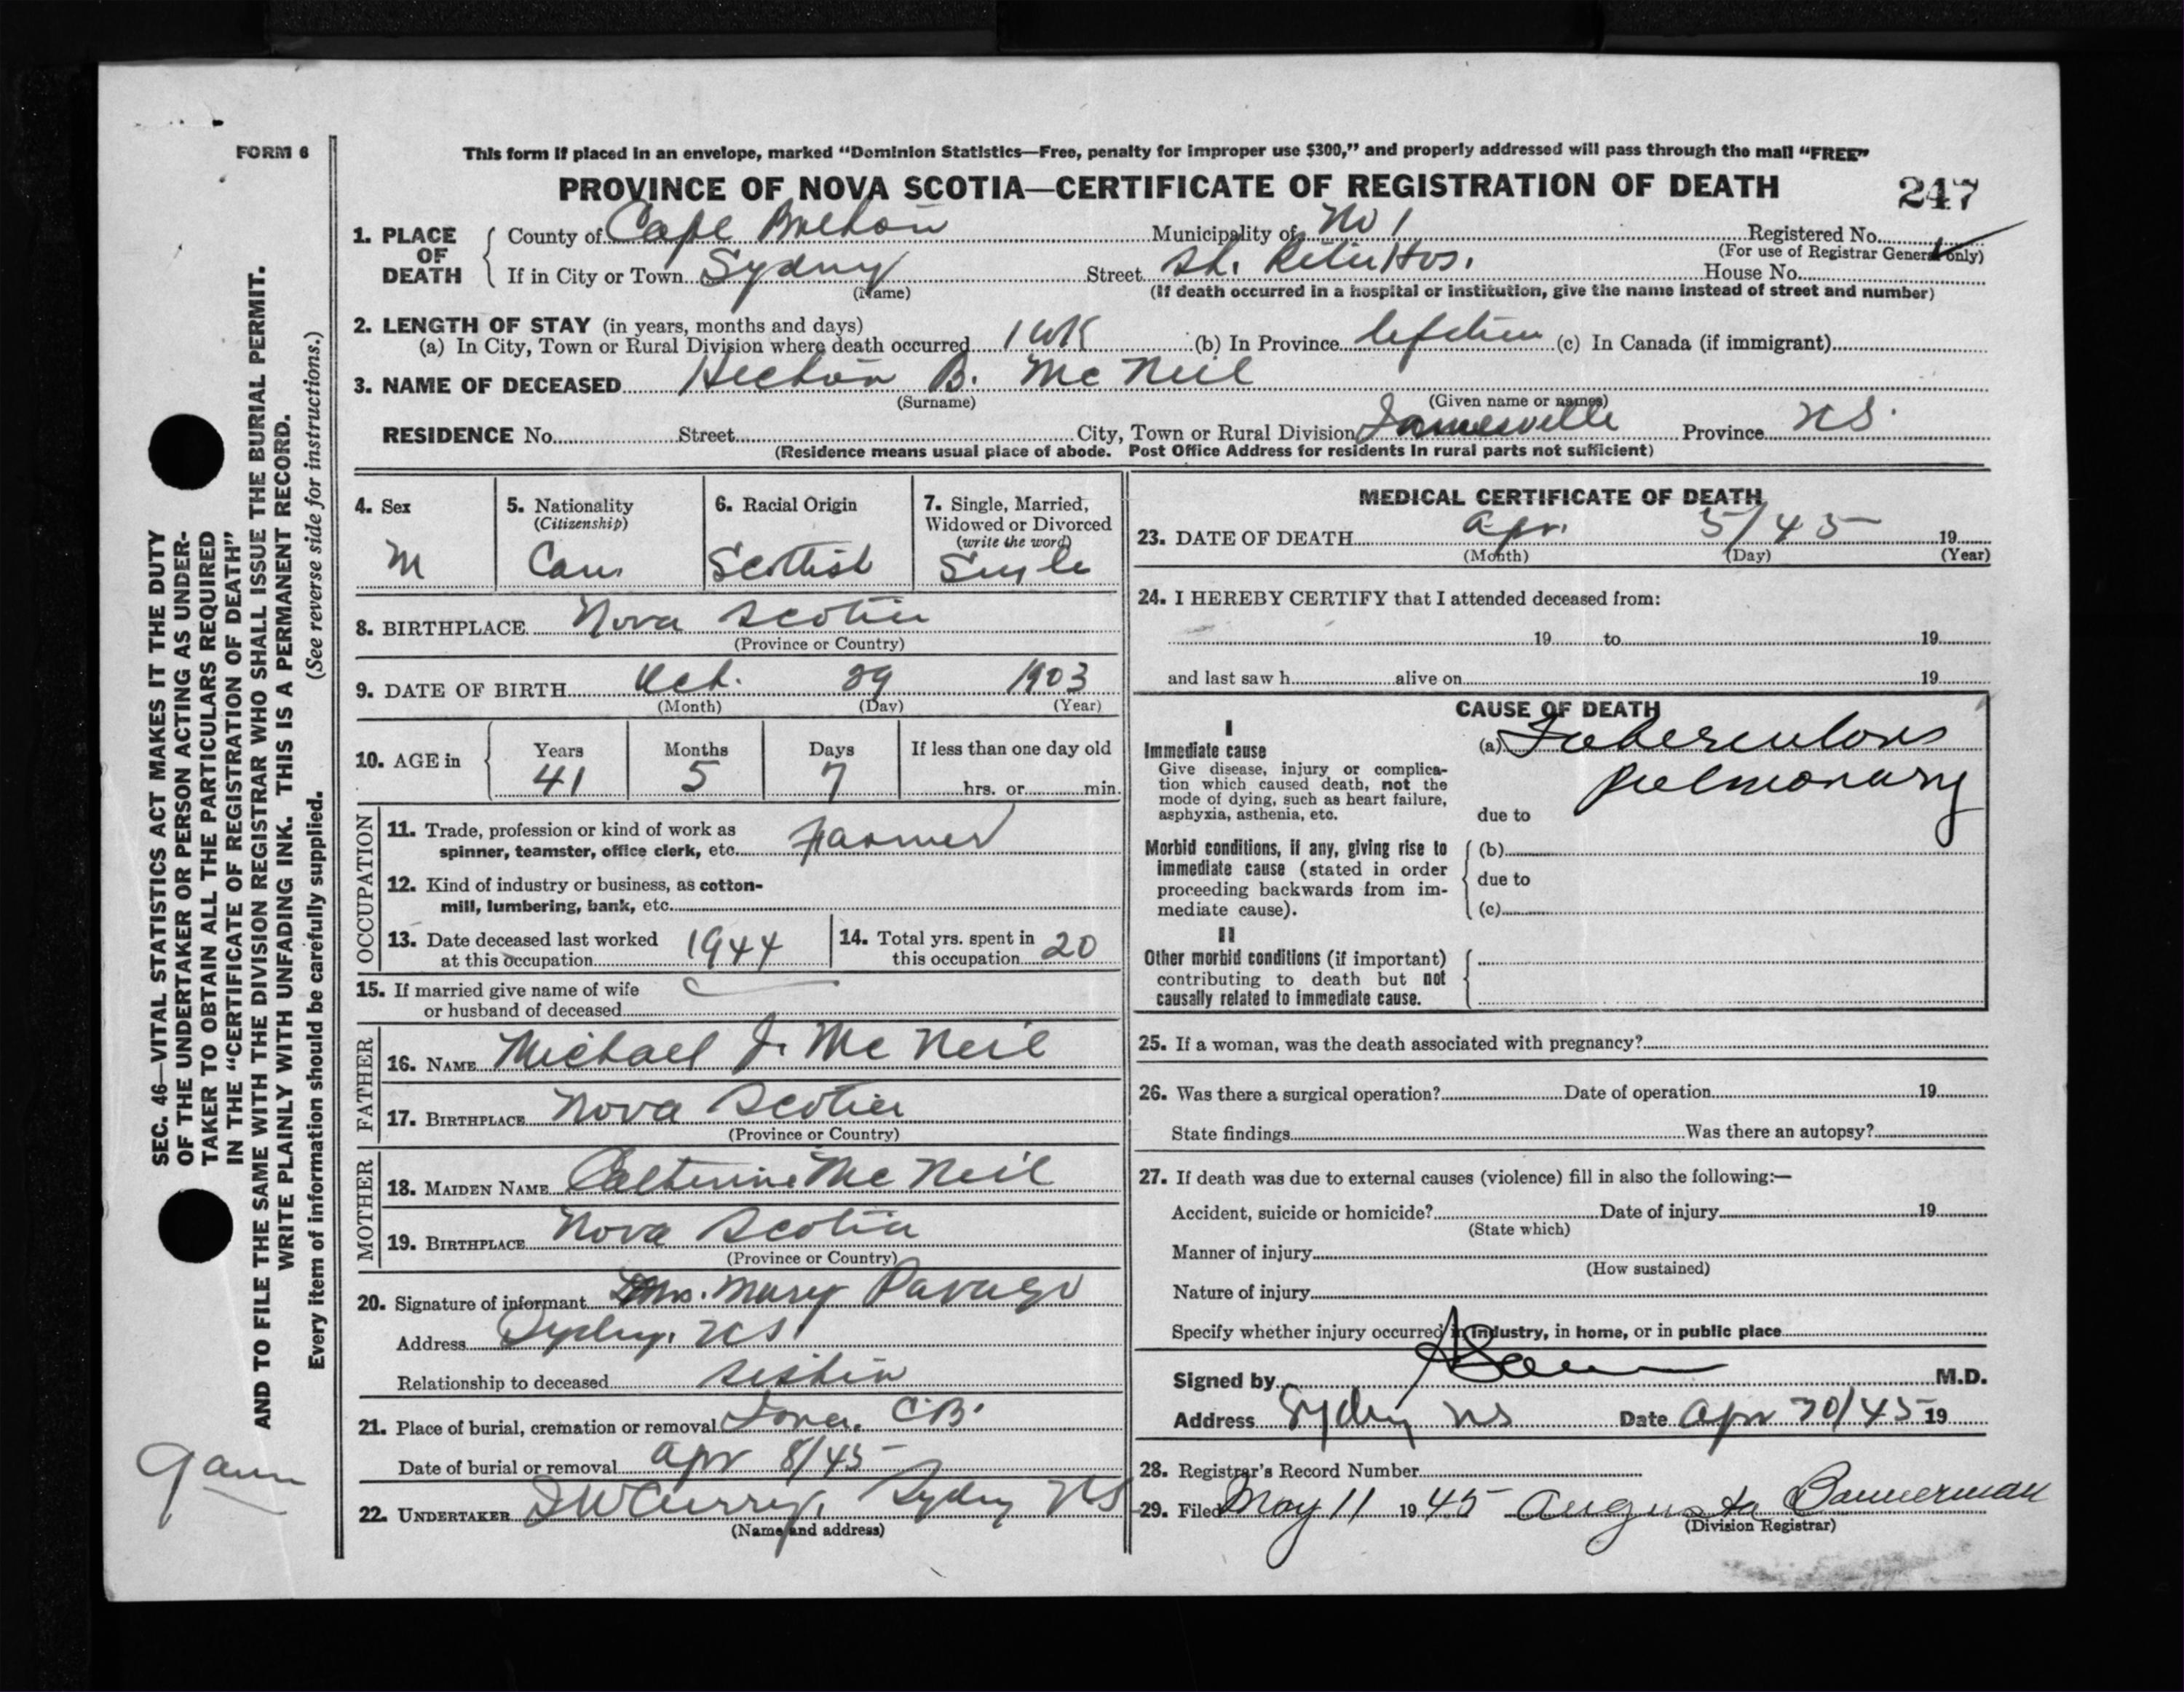 FORM 6
This form if placed in an envelope, marked “Dominion Statistics—Free, penalty for improper use $300,” and properly addressed will pass through the mail “FREE”
PROVINCE OF NOVA SCOTIA—CERTIFICATE OF REGISTRATION OF DEATH 247
1. PLACE OF DEATH
County of Cape Breton Municipality of No 1 Registered No.
(For use of Registrar General only)
If in City or Town Sydney Street St. Rita Hos. House No.
(Name) (If death occurred in a hospital or institution, give the name instead of street and number)
2. LENGTH OF STAY (in years, months and days)
(a) In City, Town or Rural Division where death occurred 1 wk (b) In Province lifetime (c) In Canada (if immigrant)
3. NAME OF DECEASED Hector B. McNeil
(Surname) (Given name or names)
RESIDENCE No. Street City, Town or Rural Division Jamesville Province NS.
(Residence means usual place of abode. Post Office Address for residents in rural parts not sufficient)
4. Sex
M
5. Nationality
(Citizenship)
Can
6. Racial Origin
Scottish
7. Single, Married,
Widowed or Divorced
(write the word)
Single
8. BIRTHPLACE Nova Scotia
(Province or Country)
9. DATE OF BIRTH Oct. 29 1903
(Month) (Day) (Year)
10. AGE in
Years Months Days If less than one day old
41 5 7 hrs. or min.
OCCUPATION
11. Trade, profession or kind of work as
spinner, teamster, office clerk, etc. Farmer
12. Kind of industry or business, as cotton-
mill, lumbering, bank, etc.
13. Date deceased last worked
at this occupation 1944
14. Total yrs. spent in
this occupation 20
15. If married give name of wife
or husband of deceased
FATHER
16. NAME Michael J. McNeil
17. BIRTHPLACE Nova Scotia
(Province or Country)
MOTHER
18. MAIDEN NAME Catherine McNeil
19. BIRTHPLACE Nova Scotia
(Province or Country)
20. Signature of informant Mrs. Mary
Address Sydney. NS.
Relationship to deceased sister
21. Place of burial, cremation or removal Iona. C.B.
Date of burial or removal Apr 8/45
22. UNDERTAKER Curry, Sydney NS
(Name and address)
MEDICAL CERTIFICATE OF DEATH
23. DATE OF DEATH Apr. 5/45 19
(Month) (Day) (Year)
24. I HEREBY CERTIFY that I attended deceased from:
19 to 19
and last saw h alive on 19
CAUSE OF DEATH
I
Immediate cause
Give disease, injury or complica-
tion which caused death, not the
mode of dying, such as heart failure,
asphyxia, asthenia, etc.
(a) Tuberculous
pulmonary
due to
Morbid conditions, if any, giving rise to
immediate cause (stated in order
proceeding backwards from im-
mediate cause).
(b)
due to
(c)
II
Other morbid conditions (if important)
contributing to death but not
causally related to immediate cause.
25. If a woman, was the death associated with pregnancy?
26. Was there a surgical operation? Date of operation 19
State findings Was there an autopsy?
27. If death was due to external causes (violence) fill in also the following:—
Accident, suicide or homicide? Date of injury 19
(State which)
Manner of injury
(How sustained)
Nature of injury
Specify whether injury occurred in industry, in home, or in public place
Signed by M.D.
Address Sydney NS Date Apr 30/45 19
28. Registrar's Record Number
29. Filed May 11 1945 Augusta Bannerman
(Division Registrar)
SEC. 46—VITAL STATISTICS ACT MAKES IT THE DUTY
OF THE UNDERTAKER OR PERSON ACTING AS UNDER-
TAKER TO OBTAIN ALL THE PARTICULARS REQUIRED
IN THE “CERTIFICATE OF REGISTRATION OF DEATH”
AND TO FILE THE SAME WITH THE DIVISION REGISTRAR WHO SHALL ISSUE THE BURIAL PERMIT.
WRITE PLAINLY WITH UNFADING INK. THIS IS A PERMANENT RECORD.
Every item of information should be carefully supplied. (See reverse side for instructions.)